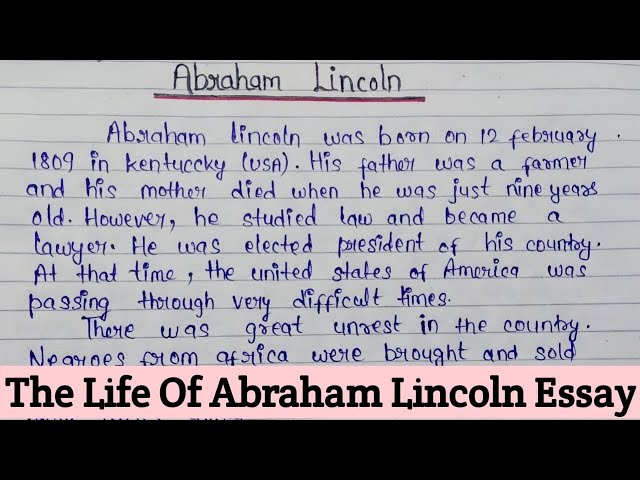 Abraham Lincoln
Abraham lincoln was born on 12 february.
1809 in kentuccky (USA). His father was a farmer
and his mother died when he was just nine years
old. However, he studied law and became a
lawyer. He was elected president of his country.
At that time, the united states of America was
passing through very difficult times.
There was great unrest in the country.
Negroes from africa were brought and sold
The Life Of Abraham Lincoln Essay